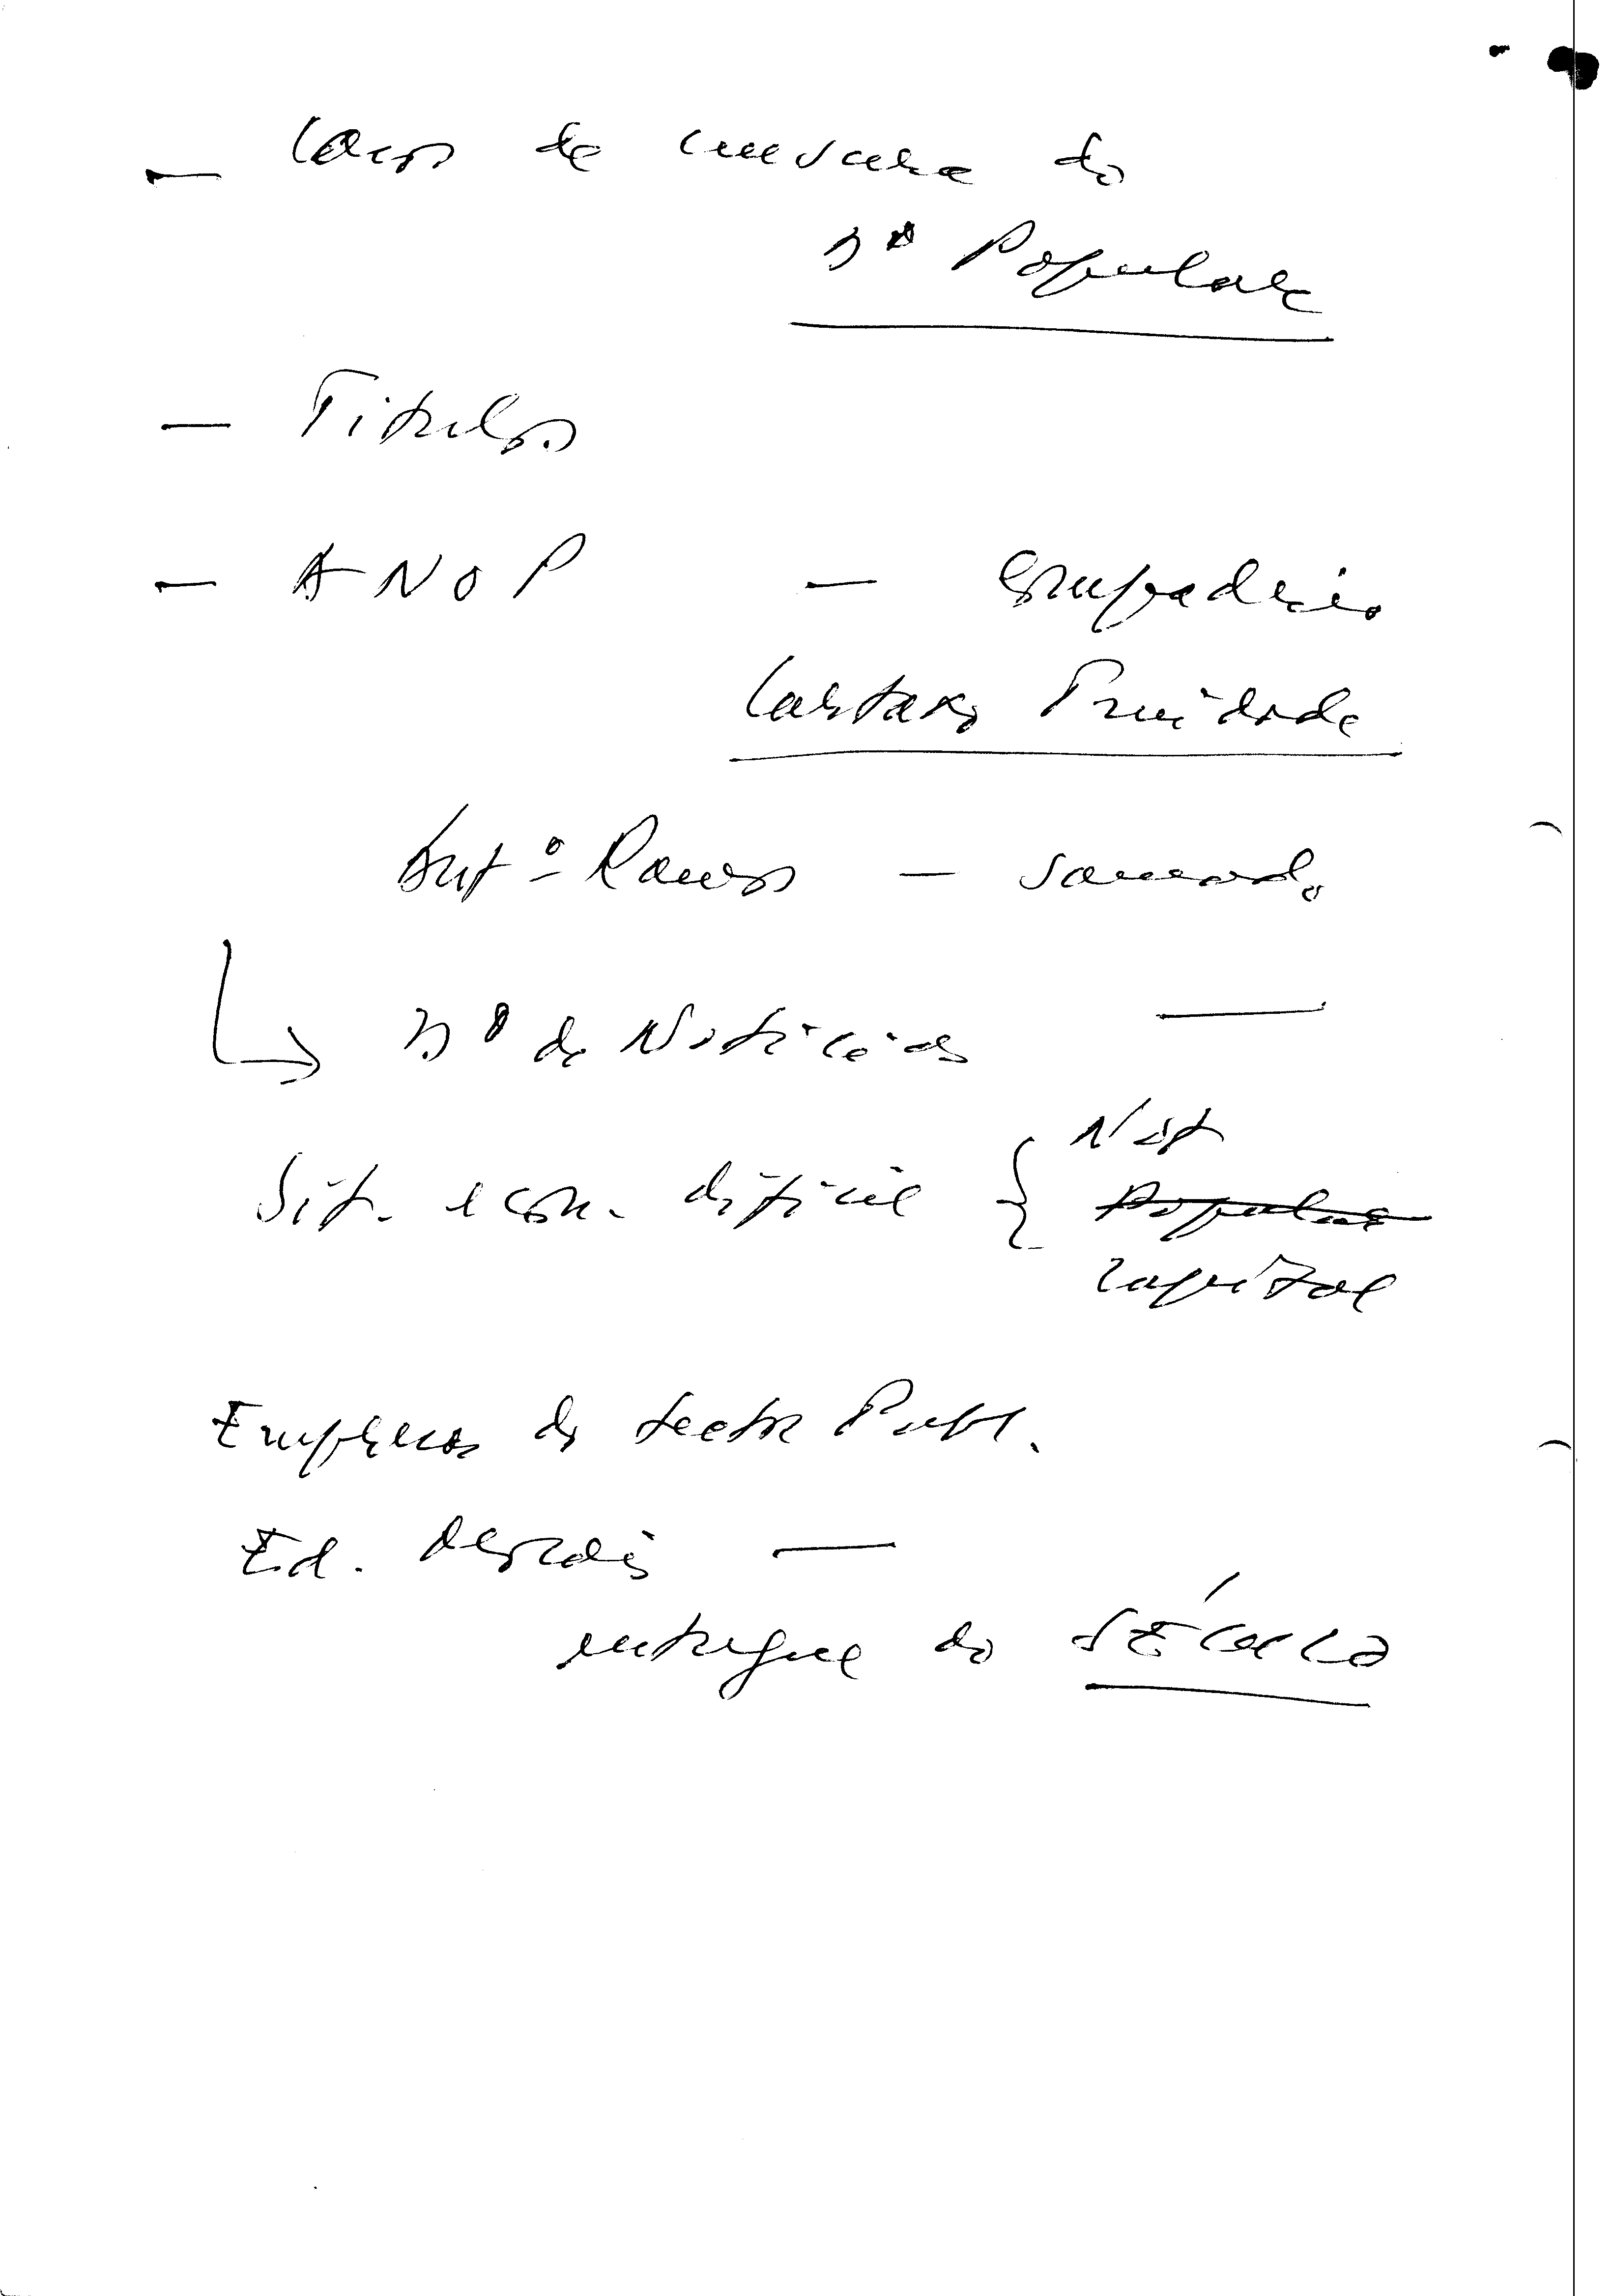 — Casos de censura do
Dº Popular
— Titulos
— ANOP — 
Cartaxo Trindade
Antº Ramos — saneado
Dº de Noticias —
Sit. econ. dificil { Not
Popular
Capital
Empresas do sector Publ.
Ed. 
entregue ao SÉCULO